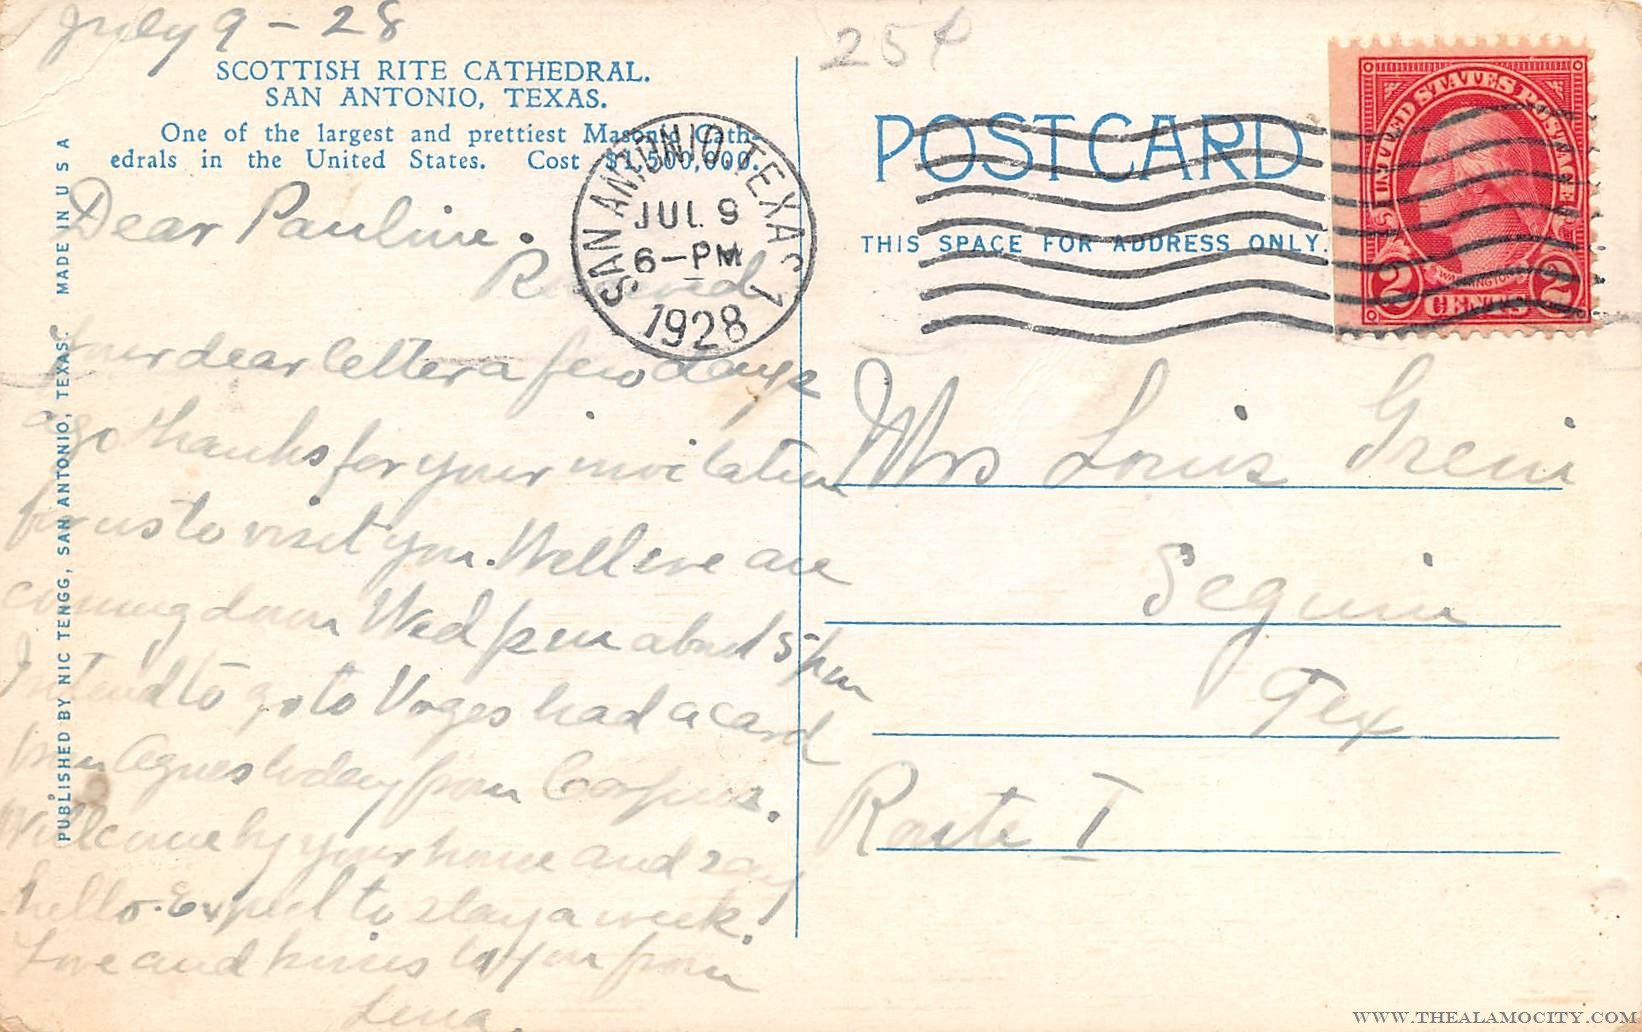 July 9 - 28
SCOTTISH RITE CATHEDRAL.
SAN ANTONIO, TEXAS.
One of the largest and prettiest Masonic Cath-
edrals in the United States. Cost $1,500,000.
MADE IN U S A
PUBLISHED BY NIC TENGG, SAN ANTONIO, TEXAS.
Dear Pauline.
Received
your dear letter a few days
ago thanks for your invitation
for us to visit you. Well we are
coming down Wed about 5 pm
Intend to go to Voges had a card
from Agnes today from Corpus.
Will come by your home and say
hello. Expect to stay a week.
Love and kisses to you from
Lena.
SAN ANTONIO, TEXAS 1
JUL 9
6-PM
1928
25¢
POST CARD
THIS SPACE FOR ADDRESS ONLY.
UNITED STATES POSTAGE
WASHINGTON
2 CENTS 2
Mrs Louis Grein
Seguin
Tex
Route I
WWW.THEALAMOCITY.COM